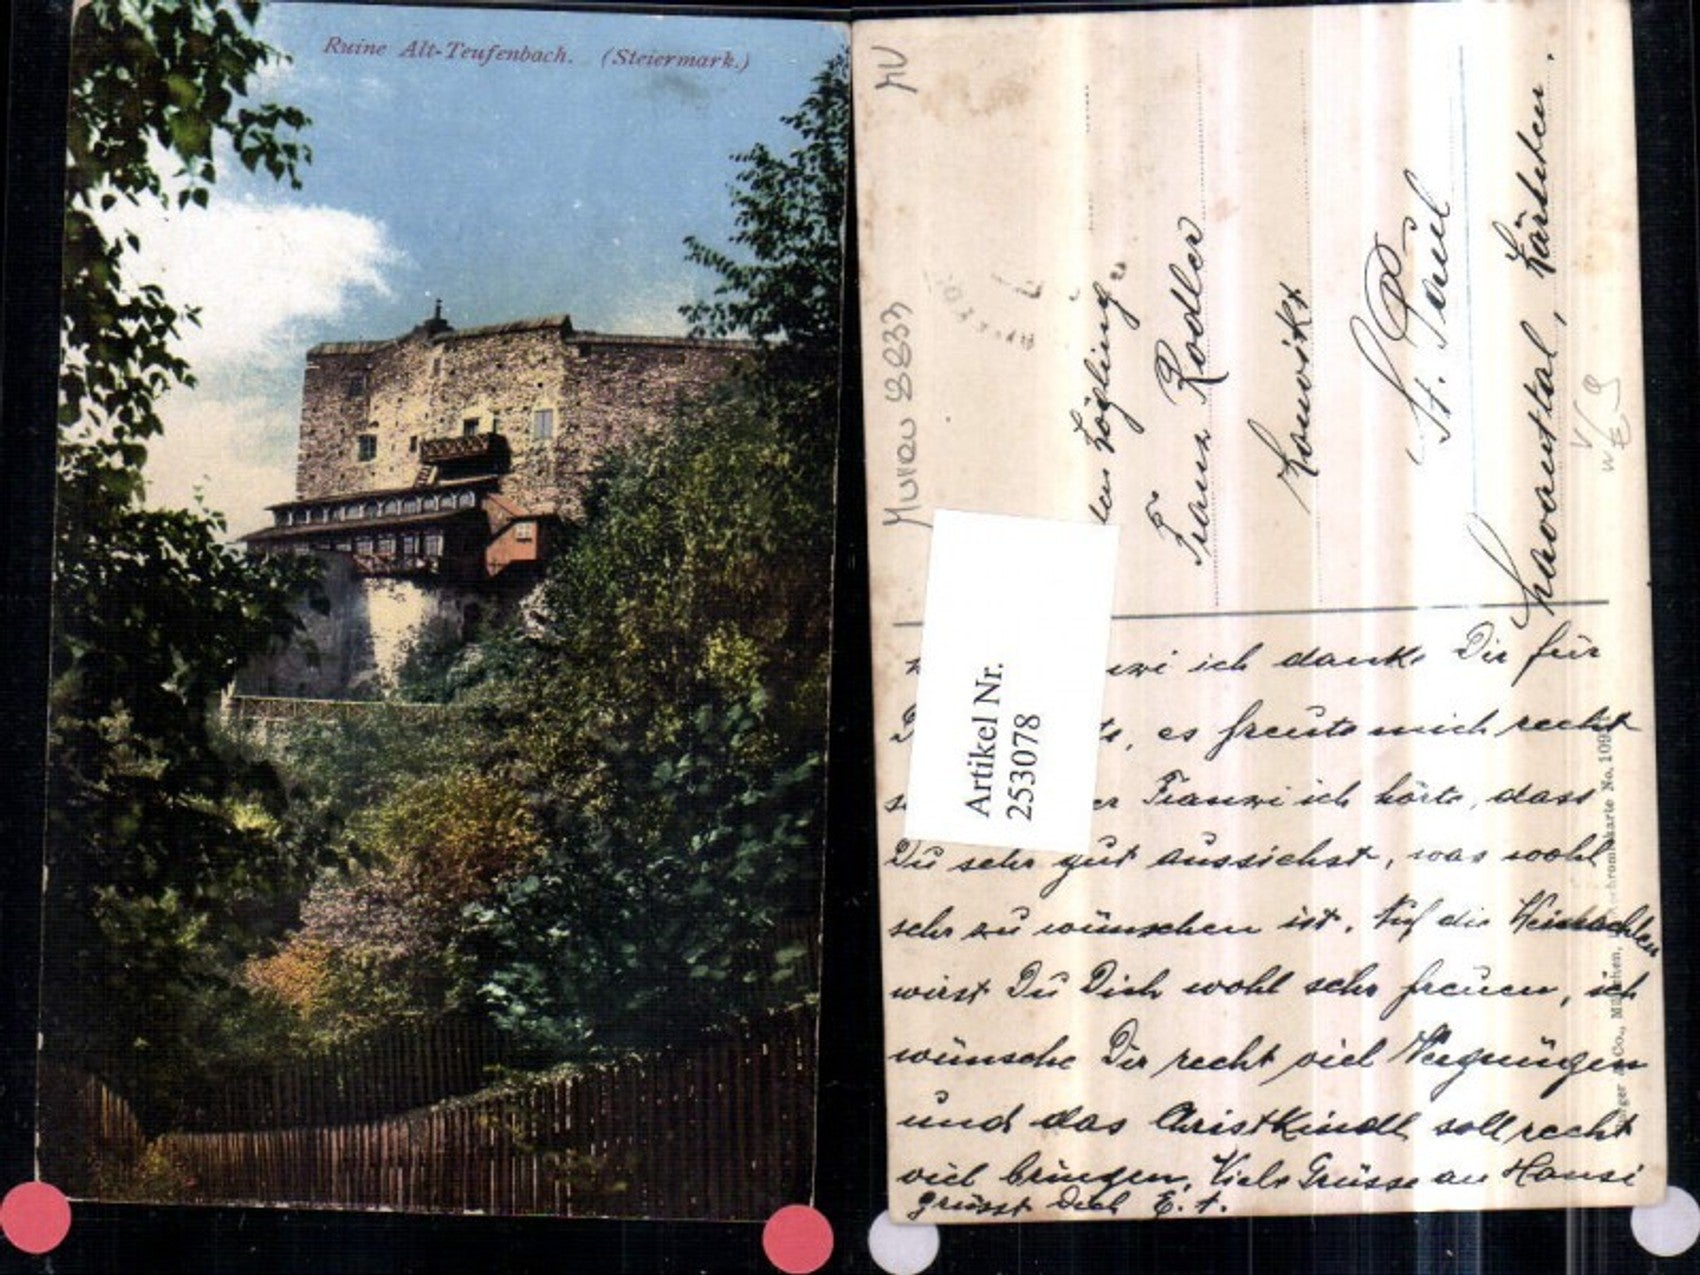 Ruine Alt-Teufenbach. (Steiermark.)
MU
Murau 8833
den Zögling
Franz Rodler
Konvikt
St. Paul
Lavanttal, Kärnten.
Artikel Nr.
2553078
ich danke Dir für
es freute mich recht
Franzi ich hörte, dass
Du sehr gut aussiehst, was wohl
sehr zu wünschen ist. Auf die Weihnachten
wirst Du Dich wohl sehr freuen, ich
wünsche Dir recht viel Vergnügen
und das Christkindl soll recht
viel bringen. Viele Grüsse an Hansi
grüsst Dich E. T.
Co., München, chromkarte No. 109